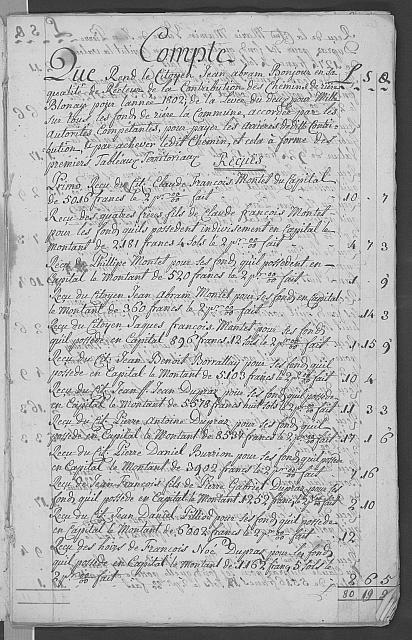 Compte
Que Rend le Citoyen Jean abram Bonjour en sa L S &
qualité de Receveur de la Contribution des Chemins de rière
Blonay pour l'année 1802, de la Levée du deux pour Mille
sur tous les fonds de rière la Commune, accordée par les
Autorités Compétantes, pour payer les arrierés de dite Contri
bution, & par achever le dit Chemin, et cela à forme des
premiers Tableaux Territoriaux Reçues
Primo, Reçu du Cit. Claude François Montet du Capital
de 5016 francs le 2 pr 00/00 fait 10 - 7
Reçu des quatres frères fils de Claude françois Montet
pour les fonds quils possedent indivisement en Capital le
montant de 2181 francs 4 sols le 2 pr 00/00 fait 4 7 3
Reçu de Phillipe Montet pour ses fonds quil possedent en
Capital le montant de 520 francs le 2 pr 00/00 fait 1 9
Reçu du Citoyen Jean Abram Montet pour ses fonds en capital
le montant de 360 francs le 2 pr 00/00 fait 14 3
Reçu du Citoyen Jaques françois Montet pour ses fonds
quil possede en Capital 896 francs 12 sols le 2 pr 00/00 fait 1 15 9
Reçu du Cit. Jean Benoit Borrallay pour ses fonds quil
possede en Capital le Montant de 5103 francs le 2 pr 00/00 fait 10 4
Reçu du Cit. Jean Dupraz pour ses fonds quil possede
en Capital le Montant de 5578 francs huit sols le 2 pr 00/00 fait 11 3 3
Reçu du Cit. Pierre Antoine Dupraz pour ses fonds quil
possede en Capital le Montant de 8537 francs le 2 pr 00/00 fait 17 1 6
Reçu du Cit. Pierre Daniel Burrion pour ses fonds quil possede
en Capital le Montant de 3902 francs le 2 pr 00/00 fait 7 16
Reçu de Jean François fils de Pierre Gabriel Dupraz pour ses
fonds quil possede en Capital le Montant 1252 francs le 2 pr 00/00 fait 2 10
Reçu du Cit. Jean Daniel pour ses fonds quil possede
en Capital le Montant de 6002 francs le 2 pr 00/00 fait 12
Reçu des hoirs de François Noé Dupraz pour les fonds
quil possede en Capital le montant de 1162 francs 5 sols le
2 pr 00/00 fait 2 6 5
80 19 9